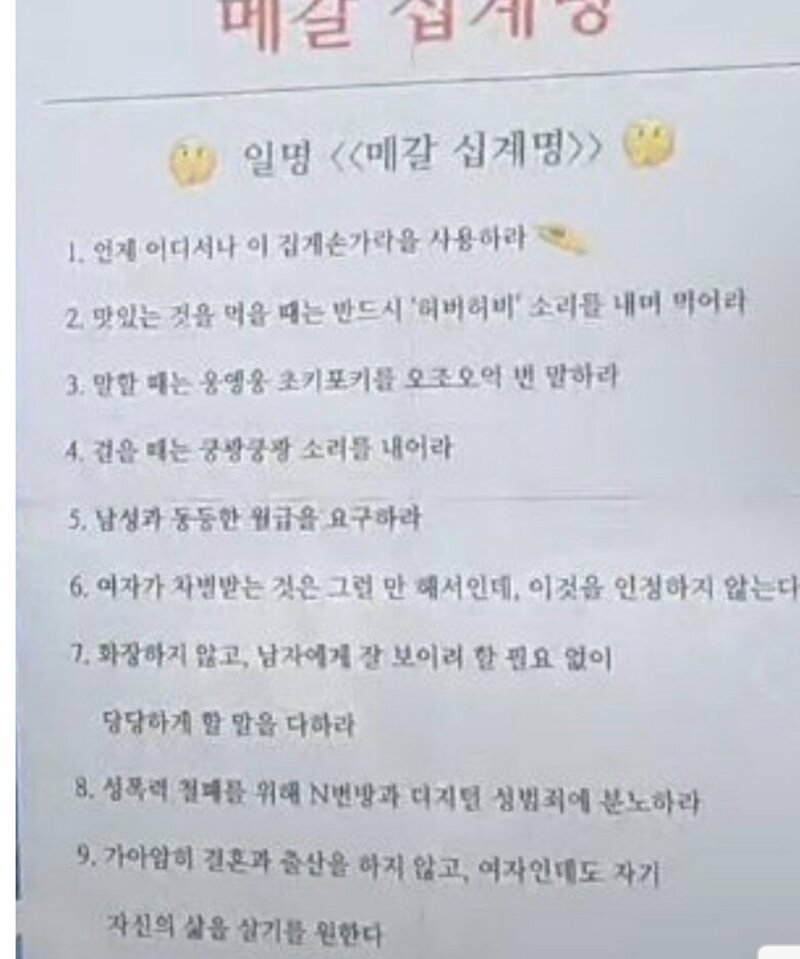 메갈 십계명
일명 <<메갈 십계명>>
1. 언제 어디서나 이 집게손가락을 사용하라
2. 맛있는 것을 먹을 때는 반드시 '허버허버' 소리를 내며 먹어라
3. 말할 때는 웅앵웅 초키포키를 오조오억 번 말하라
4. 걸을 때는 쿵쾅쿵쾅 소리를 내어라
5. 남성과 동등한 월급을 요구하라
6. 여자가 차별받는 것은 그럴 만 해서인데, 이것을 인정하지 않는다
7. 화장하지 않고, 남자에게 잘 보이려 할 필요 없이
당당하게 할 말을 다하라
8. 성폭력 철폐를 위해 N번방과 디지털 성범죄에 분노하라
9. 가아암히 결혼과 출산을 하지 않고, 여자인데도 자기
자신의 삶을 살기를 원한다